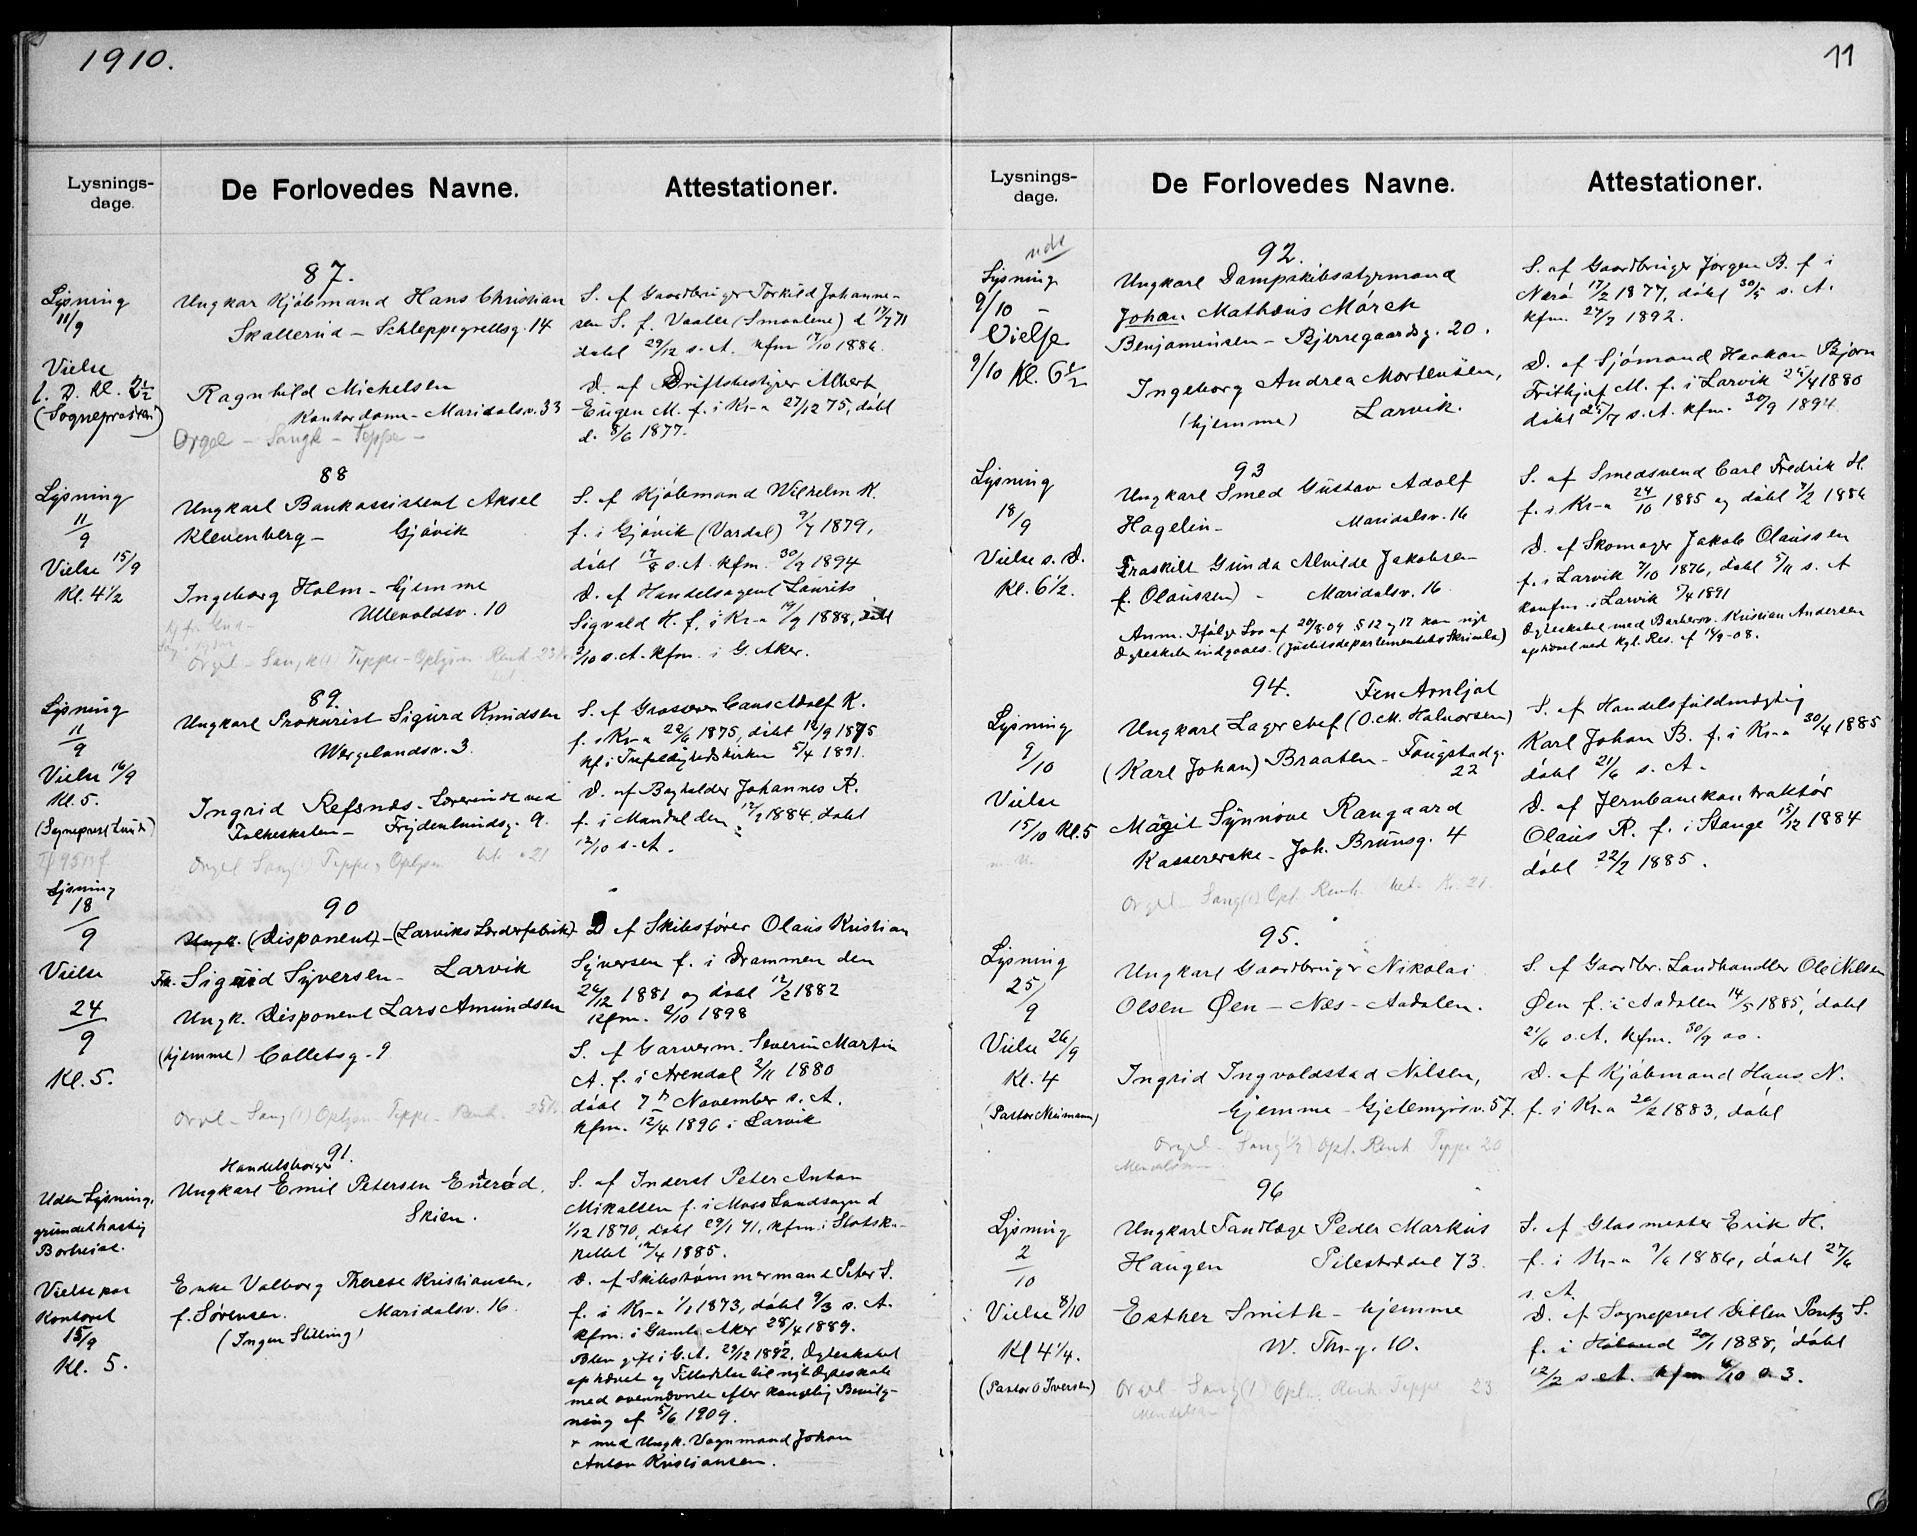 1910.
11
Lysnings-
dage.
De Forlovedes Navne.
Attestationer.
87.
Lysning
11/9
Vielse
s. D. Kl. 2 1/2
(Sognepræsten)
Ungkar Kjøbmand Hans Christian
Skallerud – Schleppegrellsg. 14
Ragnhild Michelsen
Kontordame – Maridalsv. 33
Orgel – Sangk – Teppe –
S. af Gaardbruger Torkild Johanne-
sen S. f. Vaaler (Smaalene) d 17/7 71
døbt 29/12 s. A. kfm 17/10 1886.
D. af Driftsbestyrer Albert
Eugen M. f. i Kr-a 27/12 75, døbt
d. 8/6 1877.
88
Lysning
11/9
Vielse 15/9
Kl. 4 1/2
Ungkarl Bankassistent Aksel
Klevenberg – Gjøvik
Ingeborg Holm – hjemme
Ullevoldsv. 10
Orgel – Sangk(1) Teppe – Oplysn Renh. 23
S. af Kjøbmand Wilhelm K.
f. i Gjøvik (Vardal) 9/7 1879,
døbt 17/8 s. A. kfm. 30/9 1894
D. af Handelsagent Laurits
Sigvald H. f. i Kr-a 19/9 1888, døbt
/10 s. A. kfm. i G. Aker.
89.
Lysning
11/9
Vielse 16/9
Kl. 5.
(Sogneprest Lunde)
Ungkarl Prokurist Sigurd Knudsen
Wergelandsv. 3.
Ingrid Refsnæs – Lærerinde ved
Folkeskolen – Frydenlundsg. 9.
Orgel Sang(1) Teppe Oplysn 21
S. af Grosserer Hans Adolf K.
f. i Kr-a 22/6 1875, døbt 12/9 1875
kf i Trefoldighedskirken 5/4 1891.
D. af Bogholder Johannes R.
f. i Mandal den 12/7 1884, døbt
12/10 s. A.
90
Lysning
18/9
Vielse
24/9
Kl. 5.
Ungk. (Disponent) – (Larviks Lærderfabrik)
Frk. Sigrid Syversen – Larvik
Ungk. Disponent Lars Amundsen
(hjemme) Colletsg. 9
Orgel – Sang (1) Oplysn Teppe – Renh. 25
D af Skibsfører Olaus Kristian
Syversen f. i Drammen den
26/12 1881 og døbt 12/2 1882
kfm. 2/10 1898
S. af Garverm. Severin Martin
A. f. i Arendal 2/11 1880
døbt 7de November s. A.
kfm. 12/4 1896 i Larvik
91.
Uden Lysning,
grundet hastig
Bortreise.
Vielse paa
Kontoret
15/9
Kl. 5.
Handelsborger
Ungkarl Emil Petersen Enerød,
Skien.
Enke Valborg Therese Kristiansen,
f. Sørensen. Maridalsv. 16
(Ingen Stilling)
S. af Inderst Peter Anton
Mikalsen f. i Moss Landsogn d
1/12 1870, døbt 29/1 71, kfm. i Slotska-
pellet 12/4 1885.
D. af Skibstømmermand Peter S.
f. i Kr-a 1/1 1873, døbt 9/3 s. A.
kfm. i Gamle Aker 28/4 1889.
Blev gift i G. A. 29/12 1892. Ægteskabet
ophævet og Tilladelse til nyt Ægteskab
med ovennævnte efter kongelig Bevilg-
ning af 5/6 1909.
+ med Ungk. Vognmand Johan
Anton Kristiansen.
Lysnings-
dage.
De Forlovedes Navne.
Attestationer.
92.
Lysning
9/10 –
Vielse
9/10 Kl. 6 1/2
Ungkarl Dampskibsstyrmand
Johan Mathæus Mørch
Benjaminsen – Bjerregaardsg. 20.
Ingeborg Andrea Mortensen,
(hjemme) Larvik.
S. af Gaardbruger Jørgen B. f i
Nærø 17/2 1877, døbt 30/5 s. A.
kfm. 27/7 1892.
D. af Sjømand Haakon Bjørn
Frithjof M. f. i Larvik 24/4 1880
døbt 25/7 s. A. kfm. 30/9 1894
93
Lysning
18/9
Vielse s. D.
Kl. 6 1/2.
Ungkarl Smed Gustav Adolf
Hagelin – Maridalsv. 16
Fraskilt Gunda Alvilde Jakobsen
f. Olaussen) – Maridalsv. 16
Anm. Ifølge Lov af 20/8 09 § 12 og 17 kan nyt
Ægteskab indgaaes. (Justitsdepartementets Skrivelse)
S. af Smedsvend Carl Fredrik H.
f. i Kr-a 24/10 1885 og døbt 7/2 1886
D. af Skomager Jakob Olaussen
f. i Larvik 7/10 1876, døbt 5/11 s. A
konfm. i Larvik 5/4 1891
Ægteskabet med Barbersv. Kristian Andersen
ophævet ved kgl. Res. af 14/9 – 08.
94. Finn Arnljot
Lysning
9/10
Vielse
15/10 Kl. 5
Ungkarl Lagerchef (O. M. Halvorsen)
(Karl Johan) Braathen – Fougstadg.
22
Magit Synnøve Rangaard
Kassererske – Joh. Brunsg. 4
Orgel – Sang (1) Opl. Renh. Kr. 21.
S. af Handelsfuldmægtig
Karl Johan B. f. i Kr-a 30/4 1885
døbt 21/6 s. A.
D. af Jernbanekontraktør
Olaus R. f. i Stange 15/12 1884
døbt 22/2 1885.
95.
Lysning
25/9
Vielse 26/9
Kl. 4
(Pastor Neumann)
Ungkarl Gaardbruger Nikolai
Olsen Øen – Næs – Aadalen.
Ingrid Ingvoldstad Nilsen,
hjemme – Gjetemyrsv. 57.
Orgel – Sang Opl. Renh Teppe 20
S. af Gaardbr. Landhandler Ole Nilsen
Øen f. i Aadalen 14/5 1885, døbt
21/6 s. A. kfm. 30/9 00.
D. af Kjøbmand Hans N.
f. i Kr-a 20/2 1883, døbt
96
Lysning
2/10
Vielse 8/10
Kl 4 1/4.
(Pastor O Iversen)
Ungkarl Tandlæge Peder Markus
Haugen Pilestrædet 73.
Esther Smith – hjemme
W. Thr. g. 10.
Orgel – Sang (1) Opl. Renh. Teppe 23
S. af Glasmester Erik H.
f. i Kr-a 9/6 1886, døbt 27/6
s. A.
D. af Sogneprest Ditlev Pontz S.
f. i Høland 20/1 1888, døbt
12/2 s A. kfm 4/10 03.